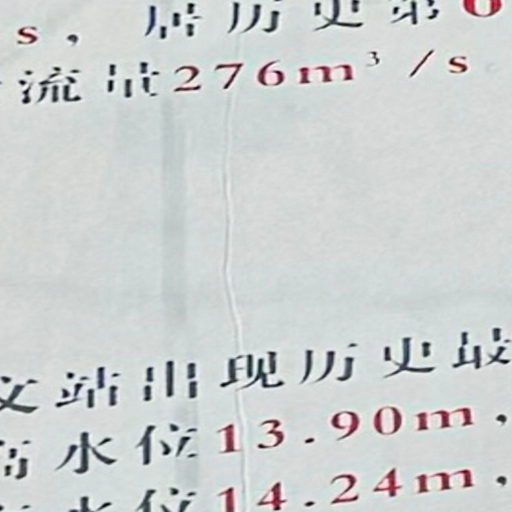 s，居历史第6
流量276m³/s
文站出现历史最
高水位13.90m，
水位14.24m，